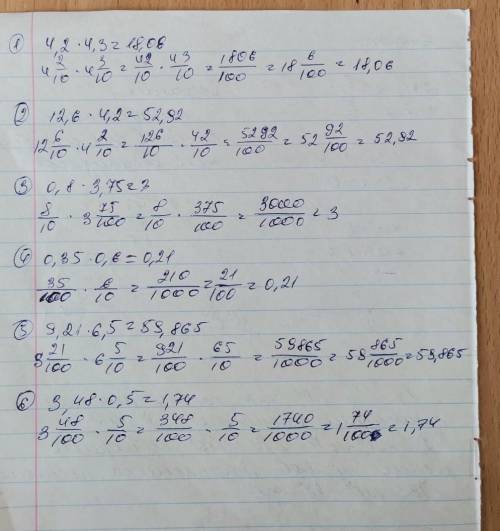 ① 4,2 · 4,3 = 18,06
4 2/10 · 4 3/10 = 42/10 · 43/10 = 1806/100 = 18 6/100 = 18,06
② 12,6 · 4,2 = 52,92
12 6/10 · 4 2/10 = 126/10 · 42/10 = 5292/100 = 52 92/100 = 52,92
③ 0,8 · 3,75 = 3
8/10 · 3 75/100 = 8/10 · 375/100 = 3000/1000 = 3
④ 0,35 · 0,6 = 0,21
35/100 · 6/10 = 210/1000 = 21/100 = 0,21
⑤ 9,21 · 6,5 = 59,865
9 21/100 · 6 5/10 = 921/100 · 65/10 = 59865/1000 = 59 865/1000 = 59,865
⑥ 3,48 · 0,5 = 1,74
3 48/100 · 5/10 = 348/100 · 5/10 = 1740/1000 = 1 74/100 = 1,74